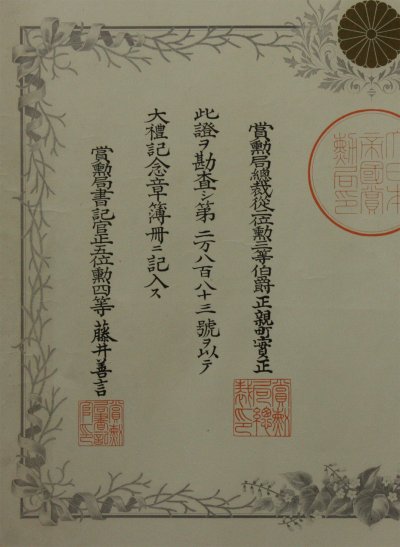 大日本
帝國賞
勲局印
賞勲局總裁從二位勲三等伯爵正親町實正
賞勲局總裁印
此證ヲ勘査シ第二万八百八十三號ヲ以テ
大禮記念章簿冊ニ記入ス
賞勲局書記官正五位勲四等藤井善言
賞勲局書記官印